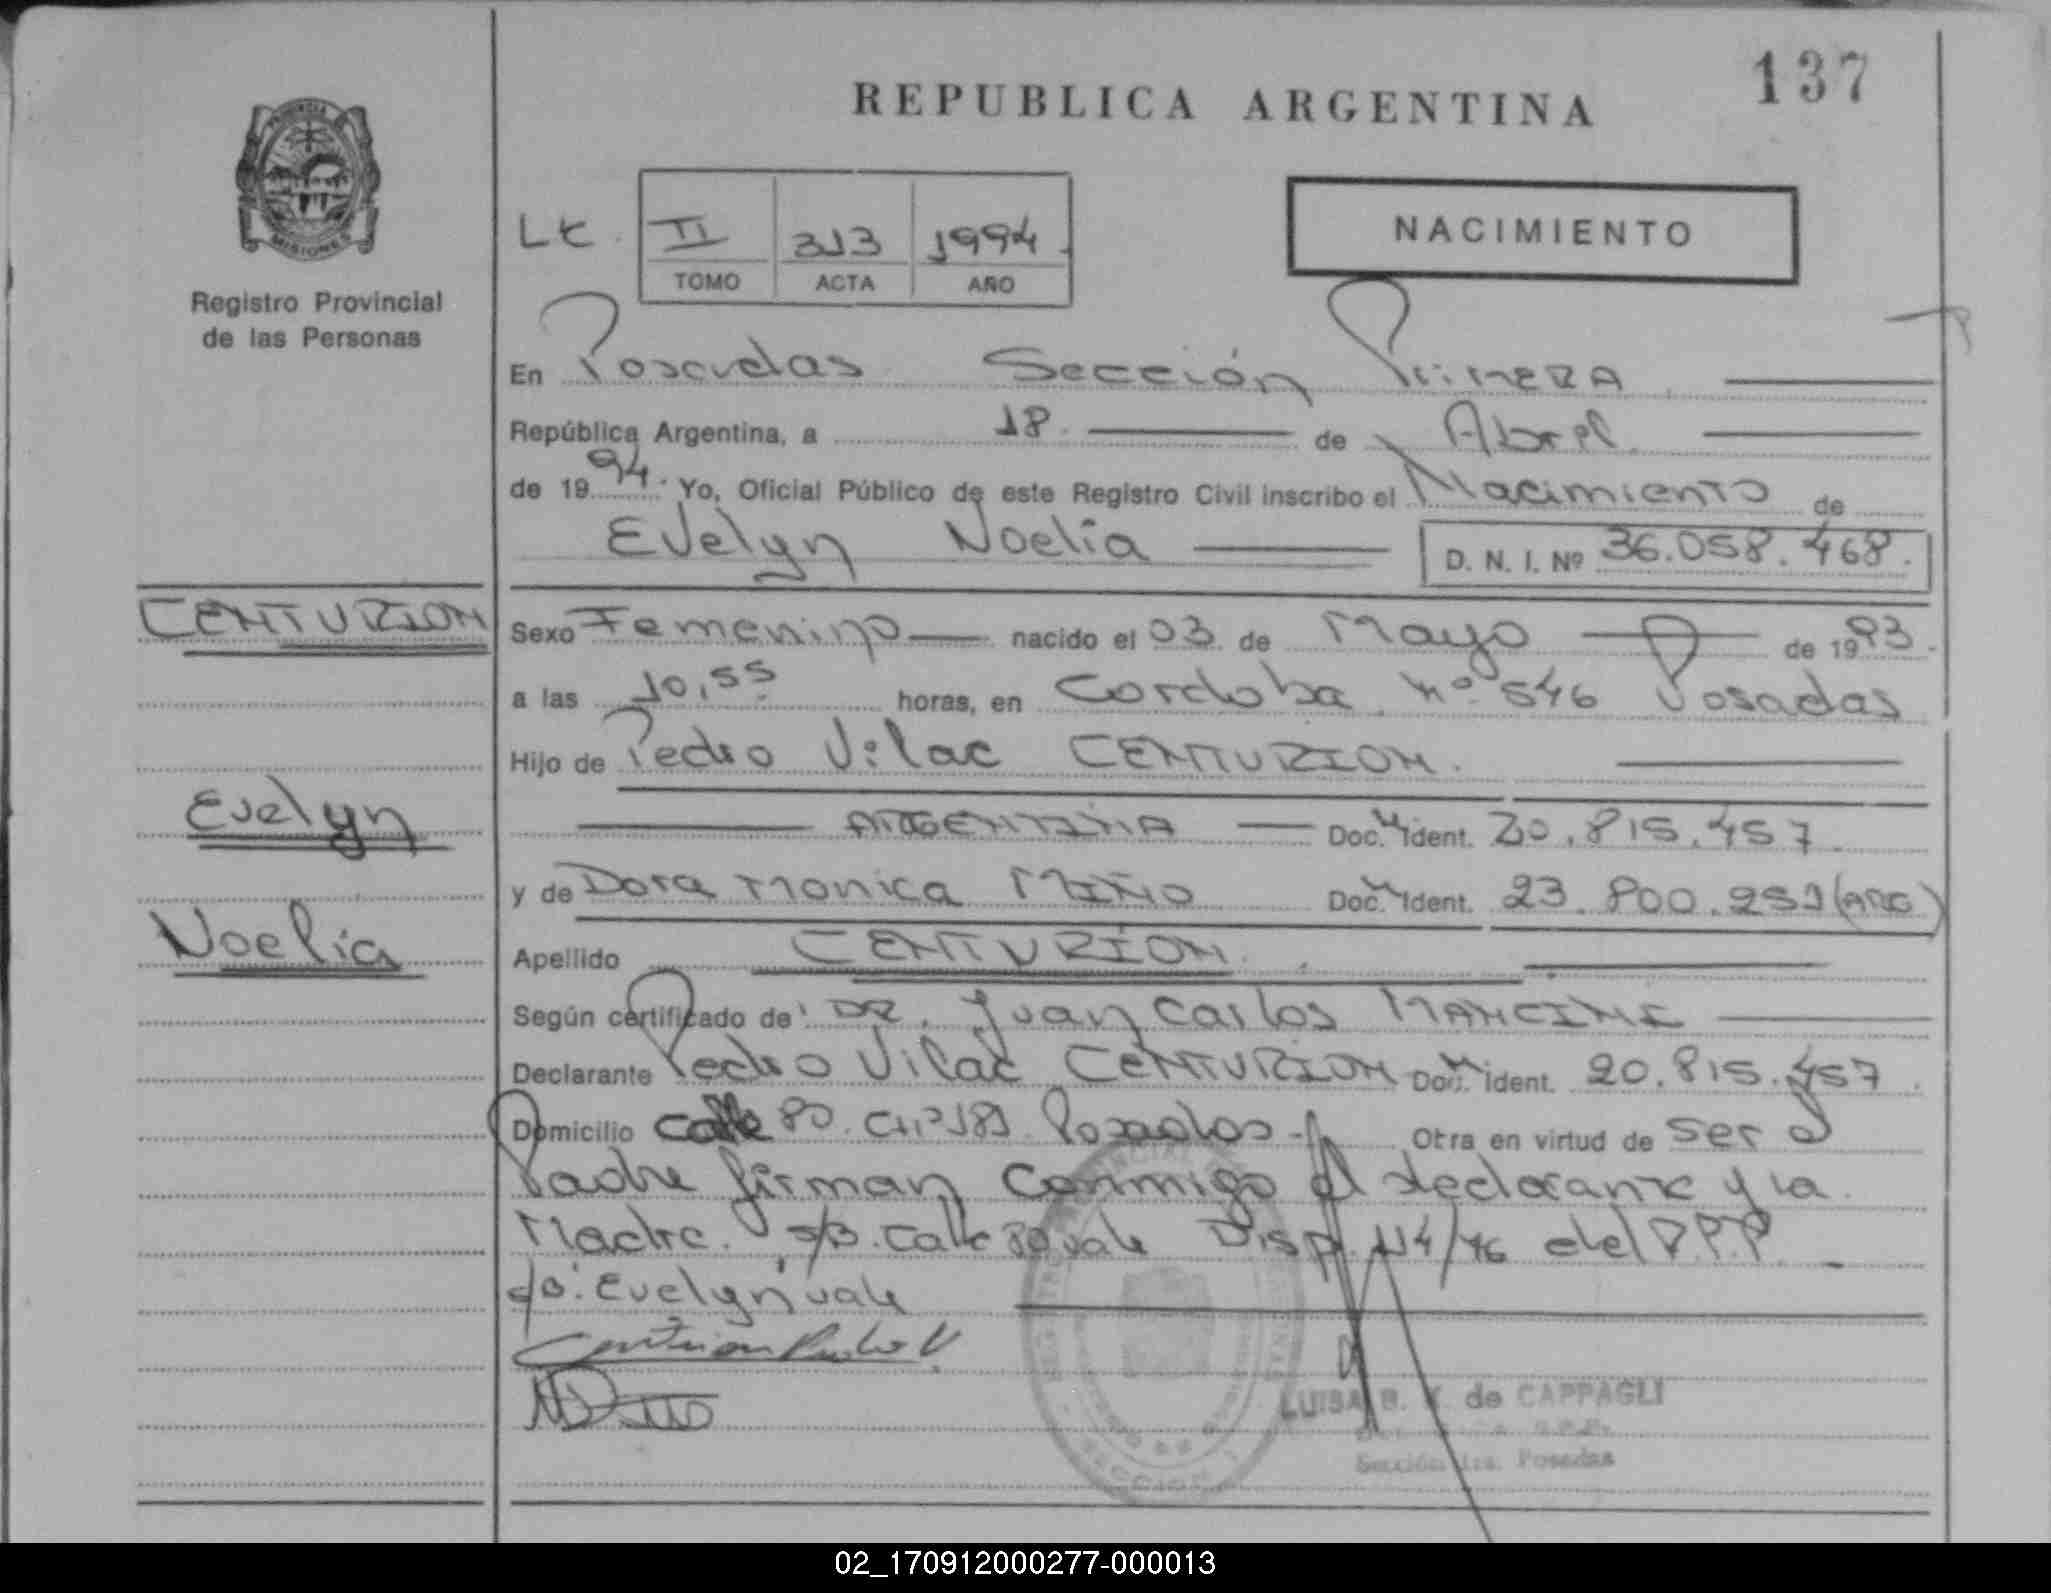 137
REPUBLICA ARGENTINA
PROVINCIA
MISIONES
Registro Provincial
de las Personas
II 313 1994
TOMO ACTA AÑO
NACIMIENTO
En Posadas Sección Primera
República Argentina, a 18 de Abril
de 1994. Yo, Oficial Público de este Registro Civil inscribo el Nacimiento de
Evelyn Noelia D. N. I. Nº 36.058.468.
CENTURION
Evelyn
Noelia
Sexo Femenino nacido el 03 de Mayo de 1993
a las 10,55 horas, en Cordoba nº 546 Posadas
Hijo de Pedro Vilac CENTURION.
ARGENTINA Doc. Ident. 20.815.457
y de Dora Monica MIÑO Doc. Ident. 23.800.251 (ARG)
Apellido CENTURION.
Según certificado de DR. Juan Carlos MANCINI
Declarante Pedro Vilac CENTURION Doc. Ident. 20.815.457
Domicilio Calle 80 Posadas Otra en virtud de ser el
Padre firman conmigo el declarante y la
Madre. s/B. Calle 80 vale Disp. 114/76 del D.P.P
Evelyn vale
LUISA B. de CAPPAGLI
Sección 1ra. Posadas
02_170912000277-000013